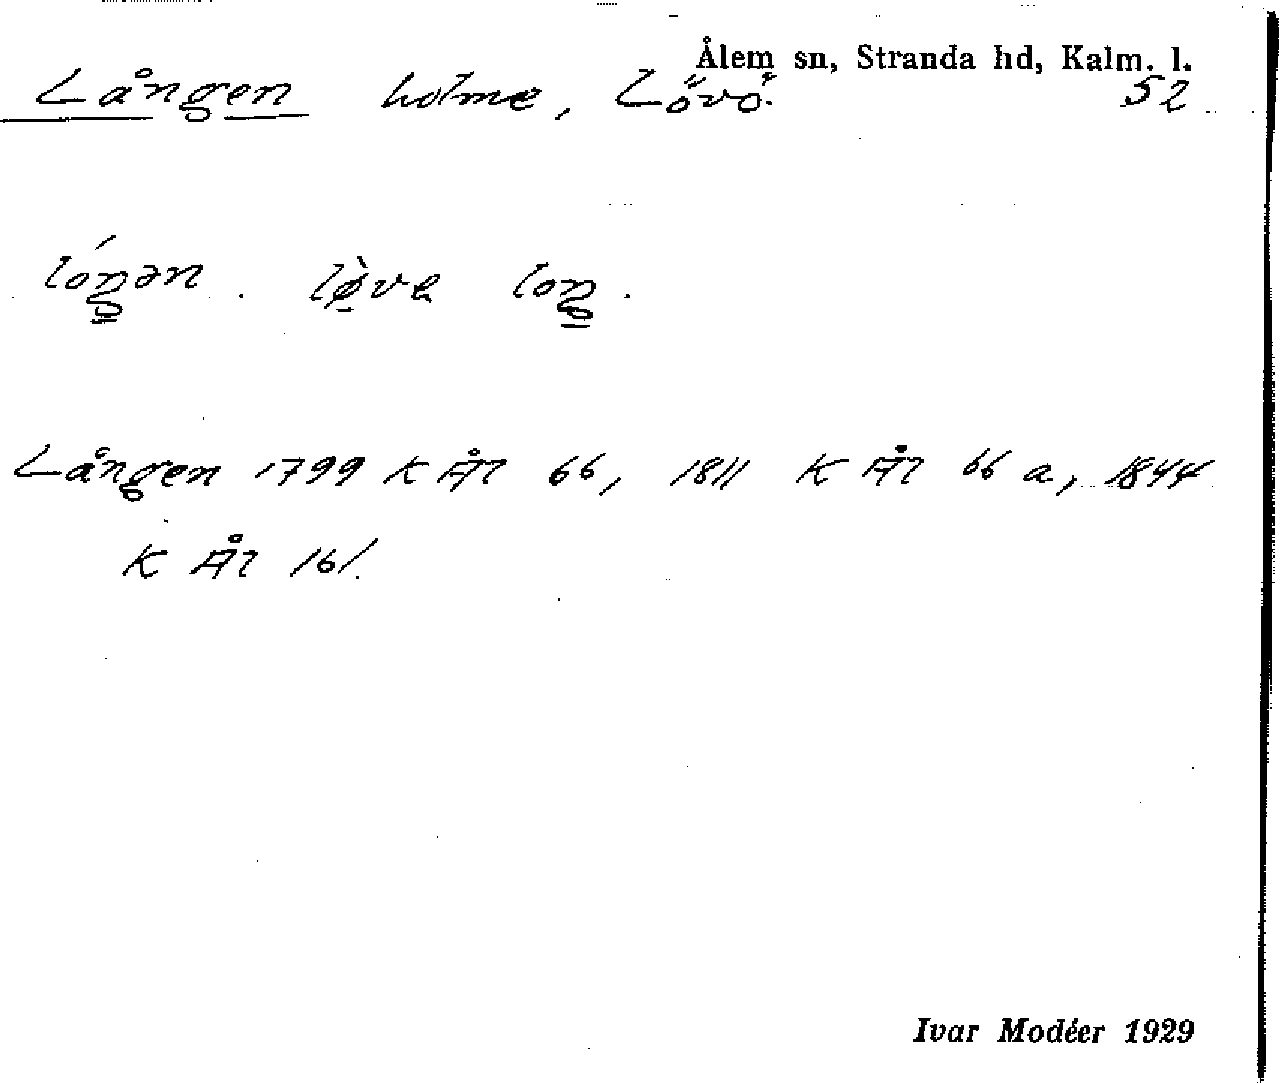 Ålem sn, Stranda hd, Kalm. l.
Lången holme, Lövö. 52
lóŋən. lø̀va loŋ.
Lången 1799 K ÅL 66, 1811 K ÅL 66 a, 1844
K ÅL 161.
Ivar Modéer 1929